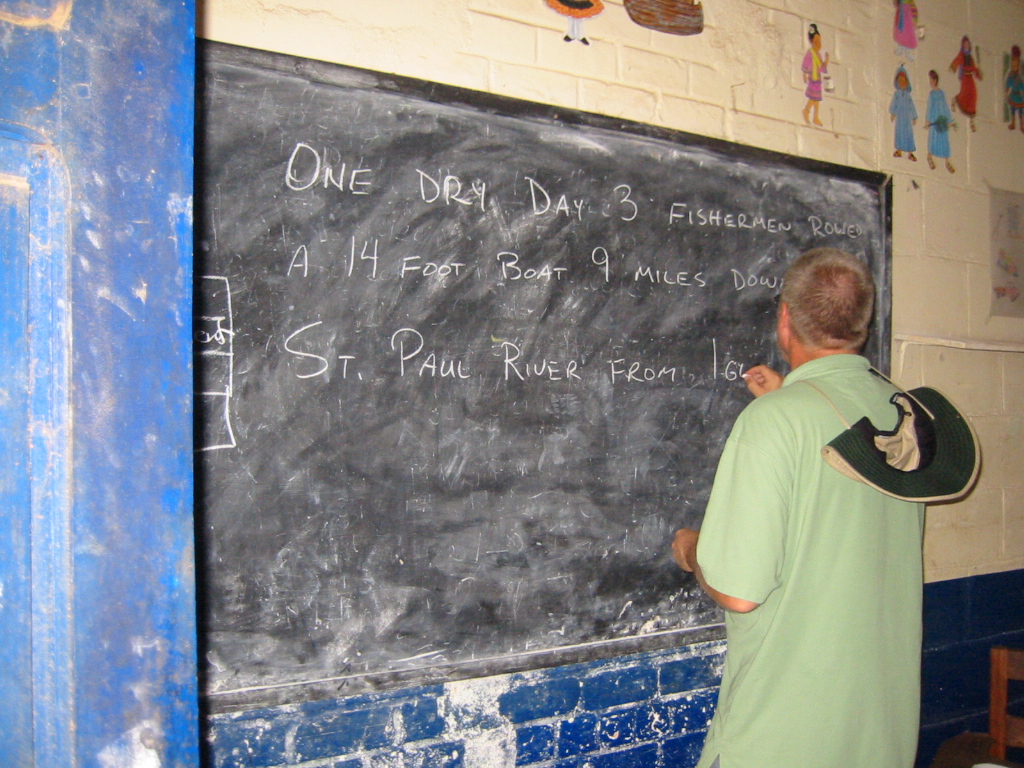 ONE DRY DAY 3 FISHERMEN ROWED
A 14 FOOT BOAT 9 MILES DOWN
ST. PAUL RIVER FROM